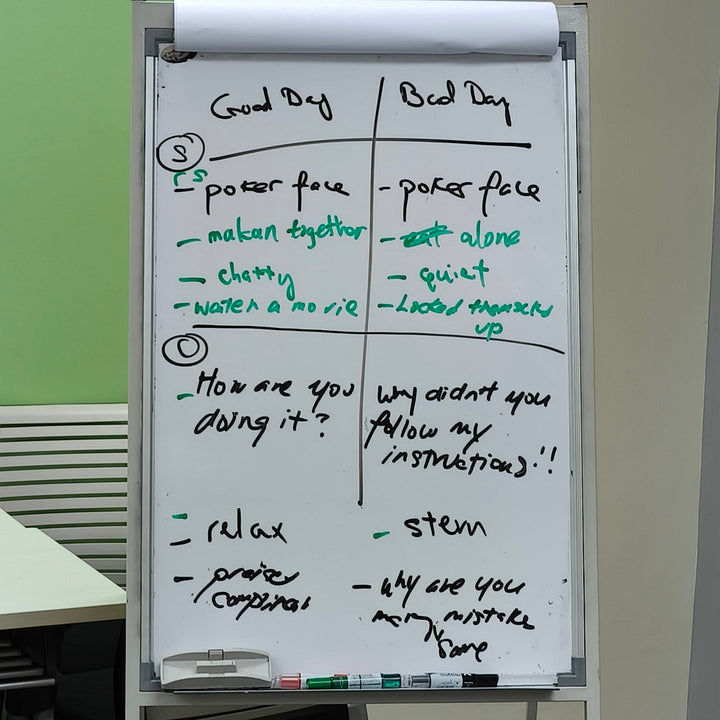 Good Day
Bad Day
S
rs
- poker face
- poker face
- makan together
- eat alone
- chatty
- quiet
- watch a movie
- Locked themselves
up
O
- How are you
doing it?
Why didn't you
follow my
instructions!!
- relax
- stern
- praises
compliment
- why are you
many mistake
same